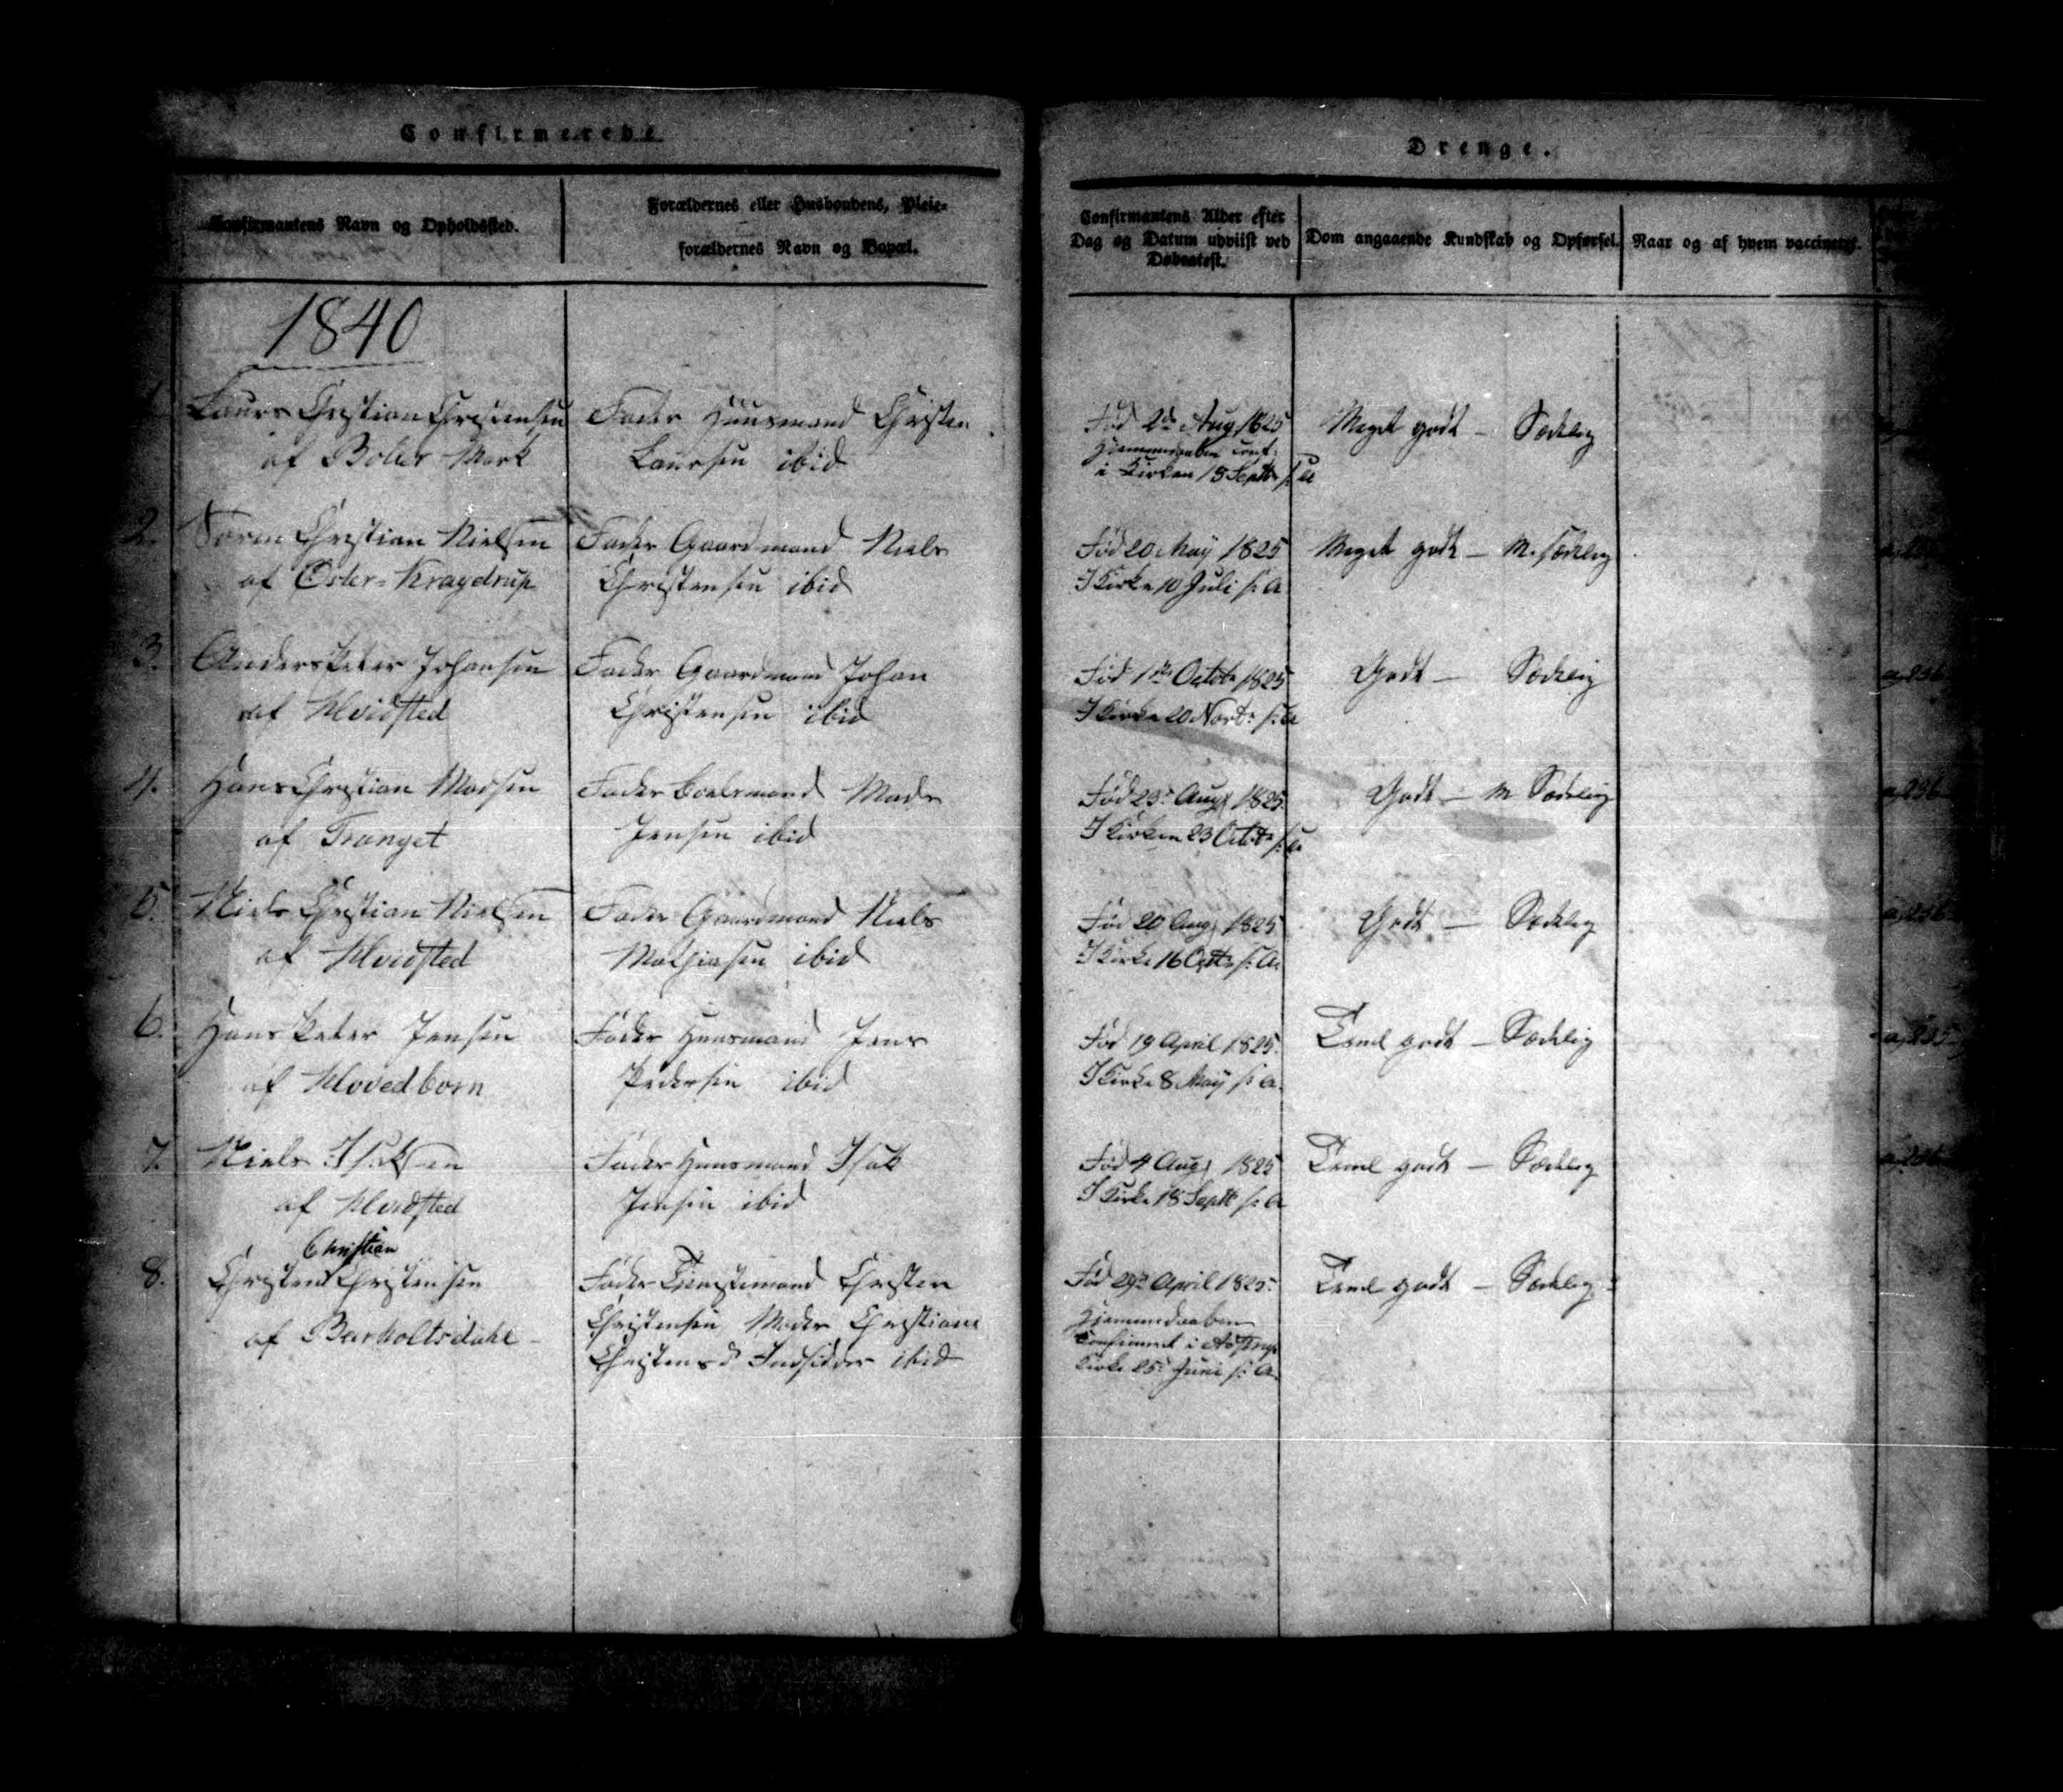 Confirmerede
Drenge.
Confirmantens Navn og Opholdssted.
Forældrenes eller Husbondens, Pleie-
forældrenes Navn og Bopæl.
Confirmantens Alder efter
Dag og Datum udviist ved
Døbeatest.
Dom angaaende Kundskab og Opførsel.
Naar og af hvem vaccineret.
1840
1. Laurs Christian Christensen
af Boller Mark
Fader Huusmand Christen
Laursen ibid
Fød 2de Aug 1825
Hjemmedøben Conf:
i Kirken 18 Septbr s: a
Meget godt – Sædelig
2. Søren Christian Nielsen
af Øster-Kragdrup
Fader Gaardmand Niels
Christensen ibid
Fød 20 May 1825
I Kirke 10 Juli s: a
Meget godt – M. sædelig
3. Anders Peter Johansen
af Hvidsted
Fader Gaardmand Johan
Christensen ibid
Fød 1ste Octobr 1825
I Kirke 20 Novbr s: a
Godt – Sædelig
a, 236
4. Hans Christian Madsen
af Tranget
Fader Boelsmand Mads
Jensen ibid
Fød 23de Aug 1825
I Kirken 23 Octobr s: a
Godt – M Sædelig
a, 236
5. Niels Christian Nielsen
af Hvidsted
Fader Gaardmand Niels
Mathiasen ibid
Fød 20 Aug 1825
I Kirke 16 Octbr s: a.
Godt – Sædelig
a, 236
6. Hans Peter Jensen
af Hovedborn
Fader Huusmand Jens
Pedersen ibid
Fød 19 April 1825.
I Kirke 8 May s: a.
Teml godt – Sædelig
a, 235
7. Niels Isaksen
af Hvidsted
Fader Huusmand Isak
Jensen ibid
Fød 4 Aug 1825
I Kirke 18 Septb s: a
Teml godt – Sædelig
a, 236
Christian
8. Christen Christensen
af Barholtsdahl
Fader Tienestemand Christen
Christensen, Moder Christiane
Christensd Indsidder ibid
Fød 29de April 1825.
Hjemmedøben
Confirmeret i
Kirke 25de Juni s: a.
Teml godt – Sædelig